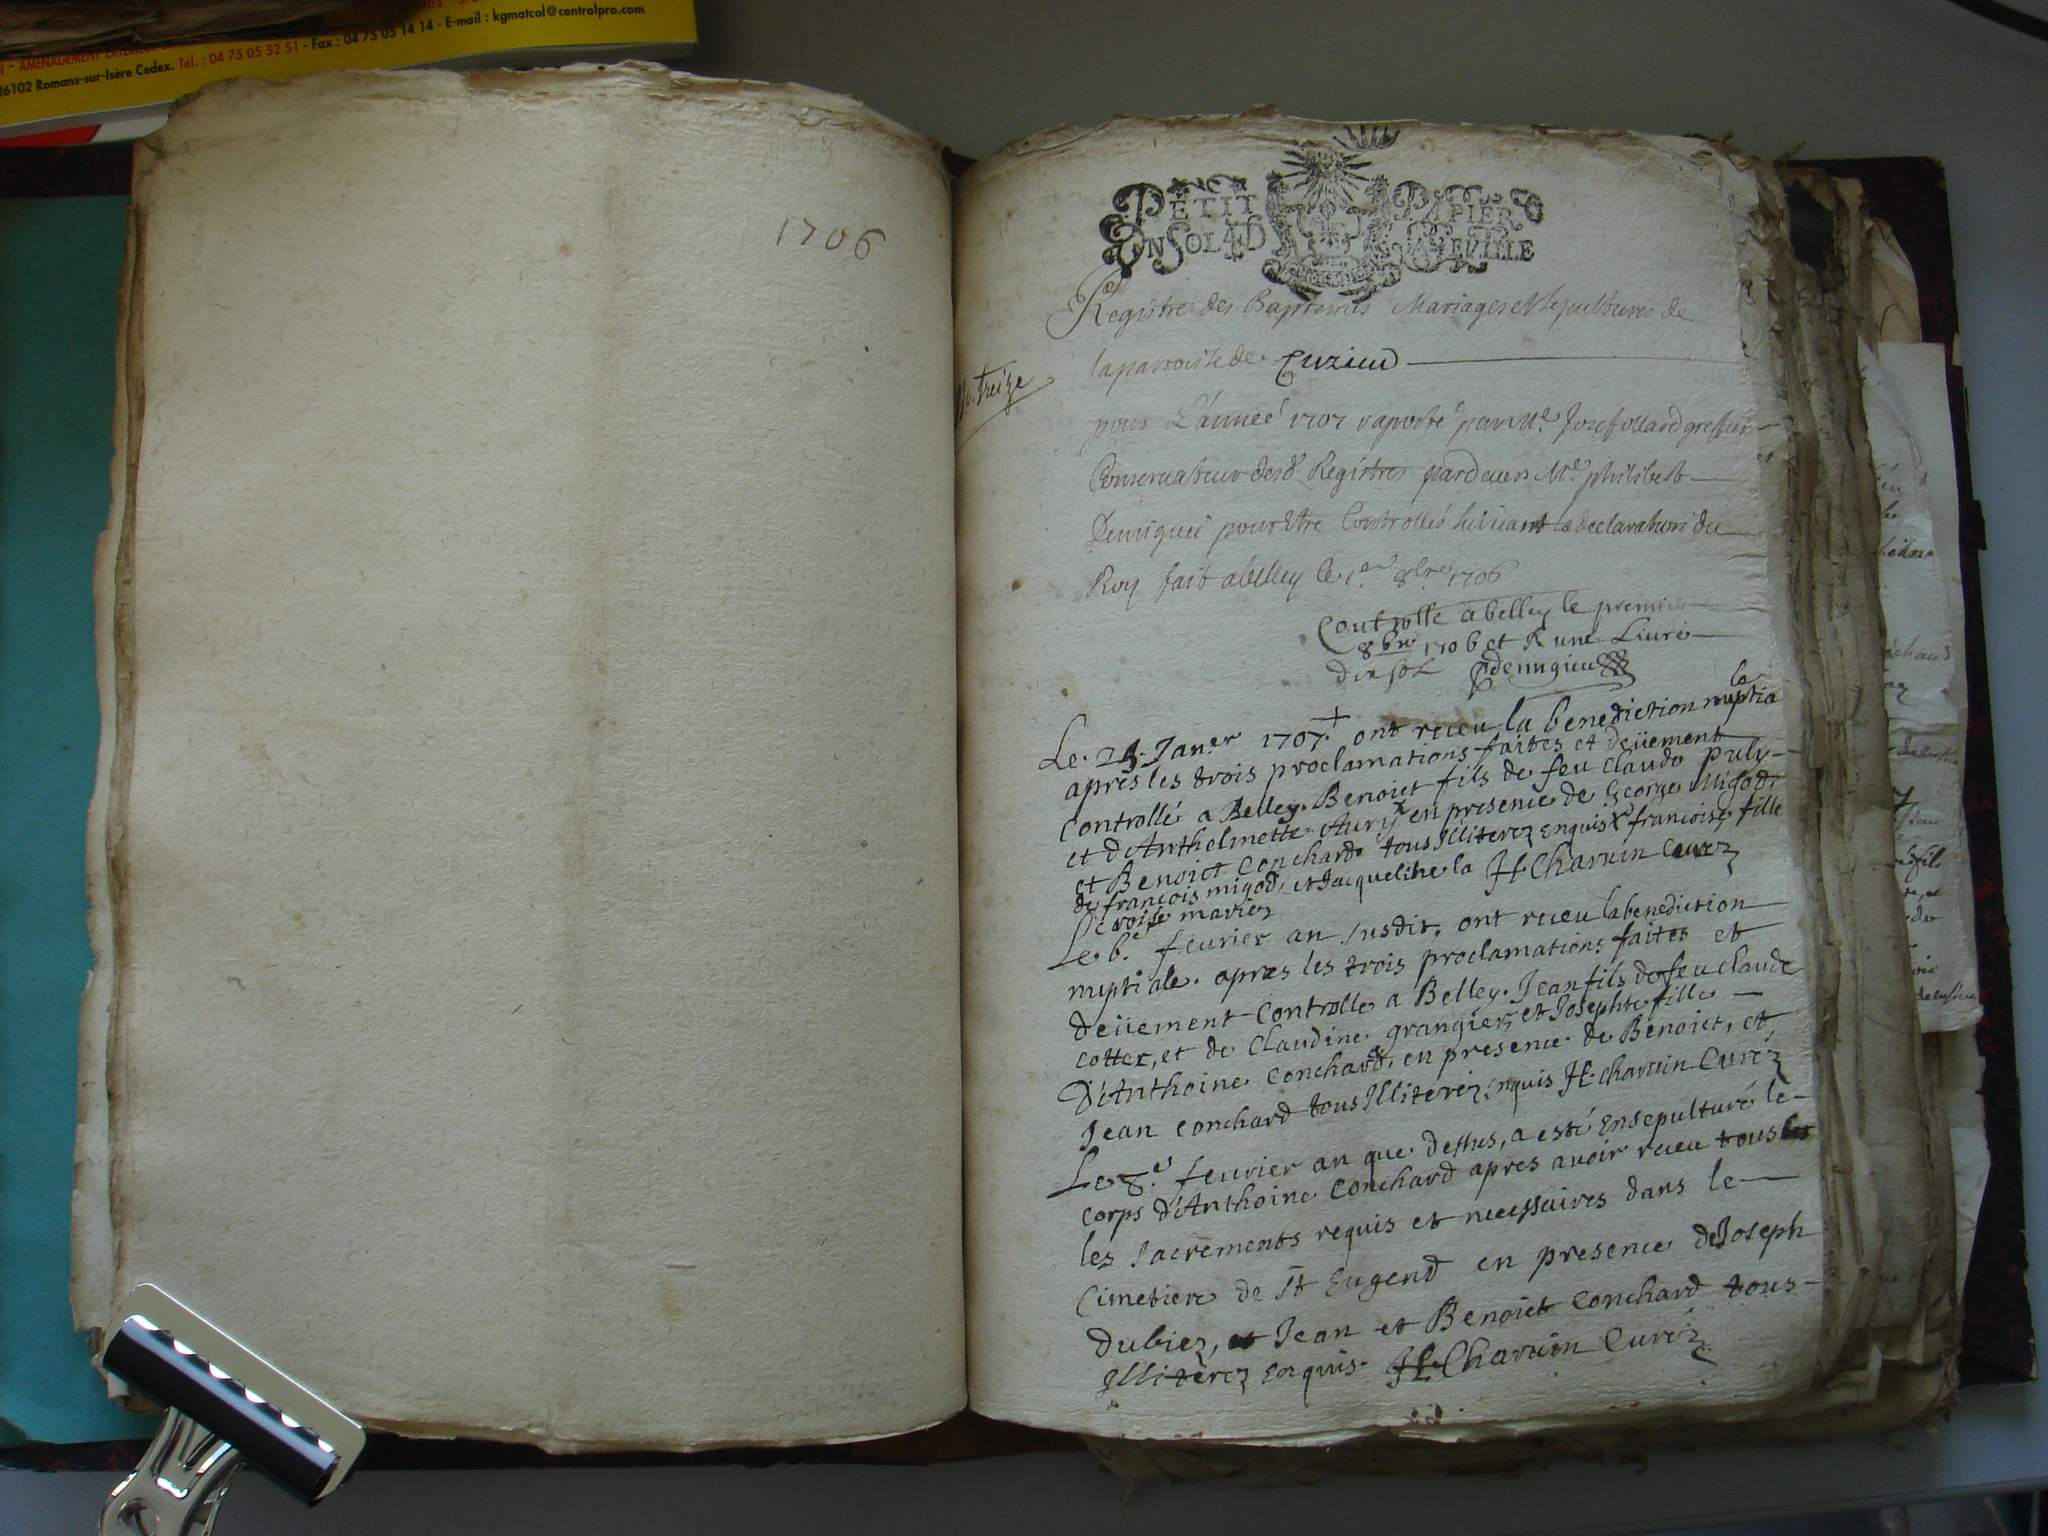 - AMENAGEMENT EXTERIEUR
26102 Romans-sur-Isère Cedex. Tél. : 04 75 05 52 51 - Fax : 04 75 05 14 14 - E-mail : kgmatcol@centralpro.com
1706
PETIT PAPIER
UN SOL 4 D LA FEVILLE
Registre des Baptemes Mariages et sepultures de
la parroisse de Cuzieu
pour L'année 1707 raporté par Me. Jozeff ollard greffier
Conservateur desd. Registres pardevers Me. philibert
Demigieu pour Etre Controllés suivant la declaration du
Roy fait a belley le 1er 8bre 1706
treize
Controlle a belley le premier
8bre 1706 et R une Livre
dix sol Demigieu
Le. 25. Janer 1707. ont receu la benediction nuptia
le
apres les trois proclamations faites et deüement
Controllé a Belley. Benoict fils de feu claude Puly
et d'Anthelmette Aury en presence de George Migod,
et Benoict Conchard tous Illiterez enquis francoise fille
de francois migod, et Jacqueline la H Charvin Curez
croise mariez
Le 6.e fevrier an susdit. ont receu la benediction
nuptiale. apres les trois proclamations faites et
deüement Controlle a Belley. Jean fils de feu claude
cotter, et de Claudine grangier, et Josephte fille
d'Anthoine Conchard, en presence de Benoict, et
Jean Conchard tous Illiterez enquis H. charvin Curéz
Le 8.e fevrier an que dessus, a esté Ensepulturé le
corps d'Anthoine Conchard apres avoir receu tous les
les sacrements requis et necessaires dans le
Cimetiere de St Eugend en presence de Joseph
Dubiez, et Jean et Benoict Conchard tous
Illiterez Enquis. H. Charvin Curéz